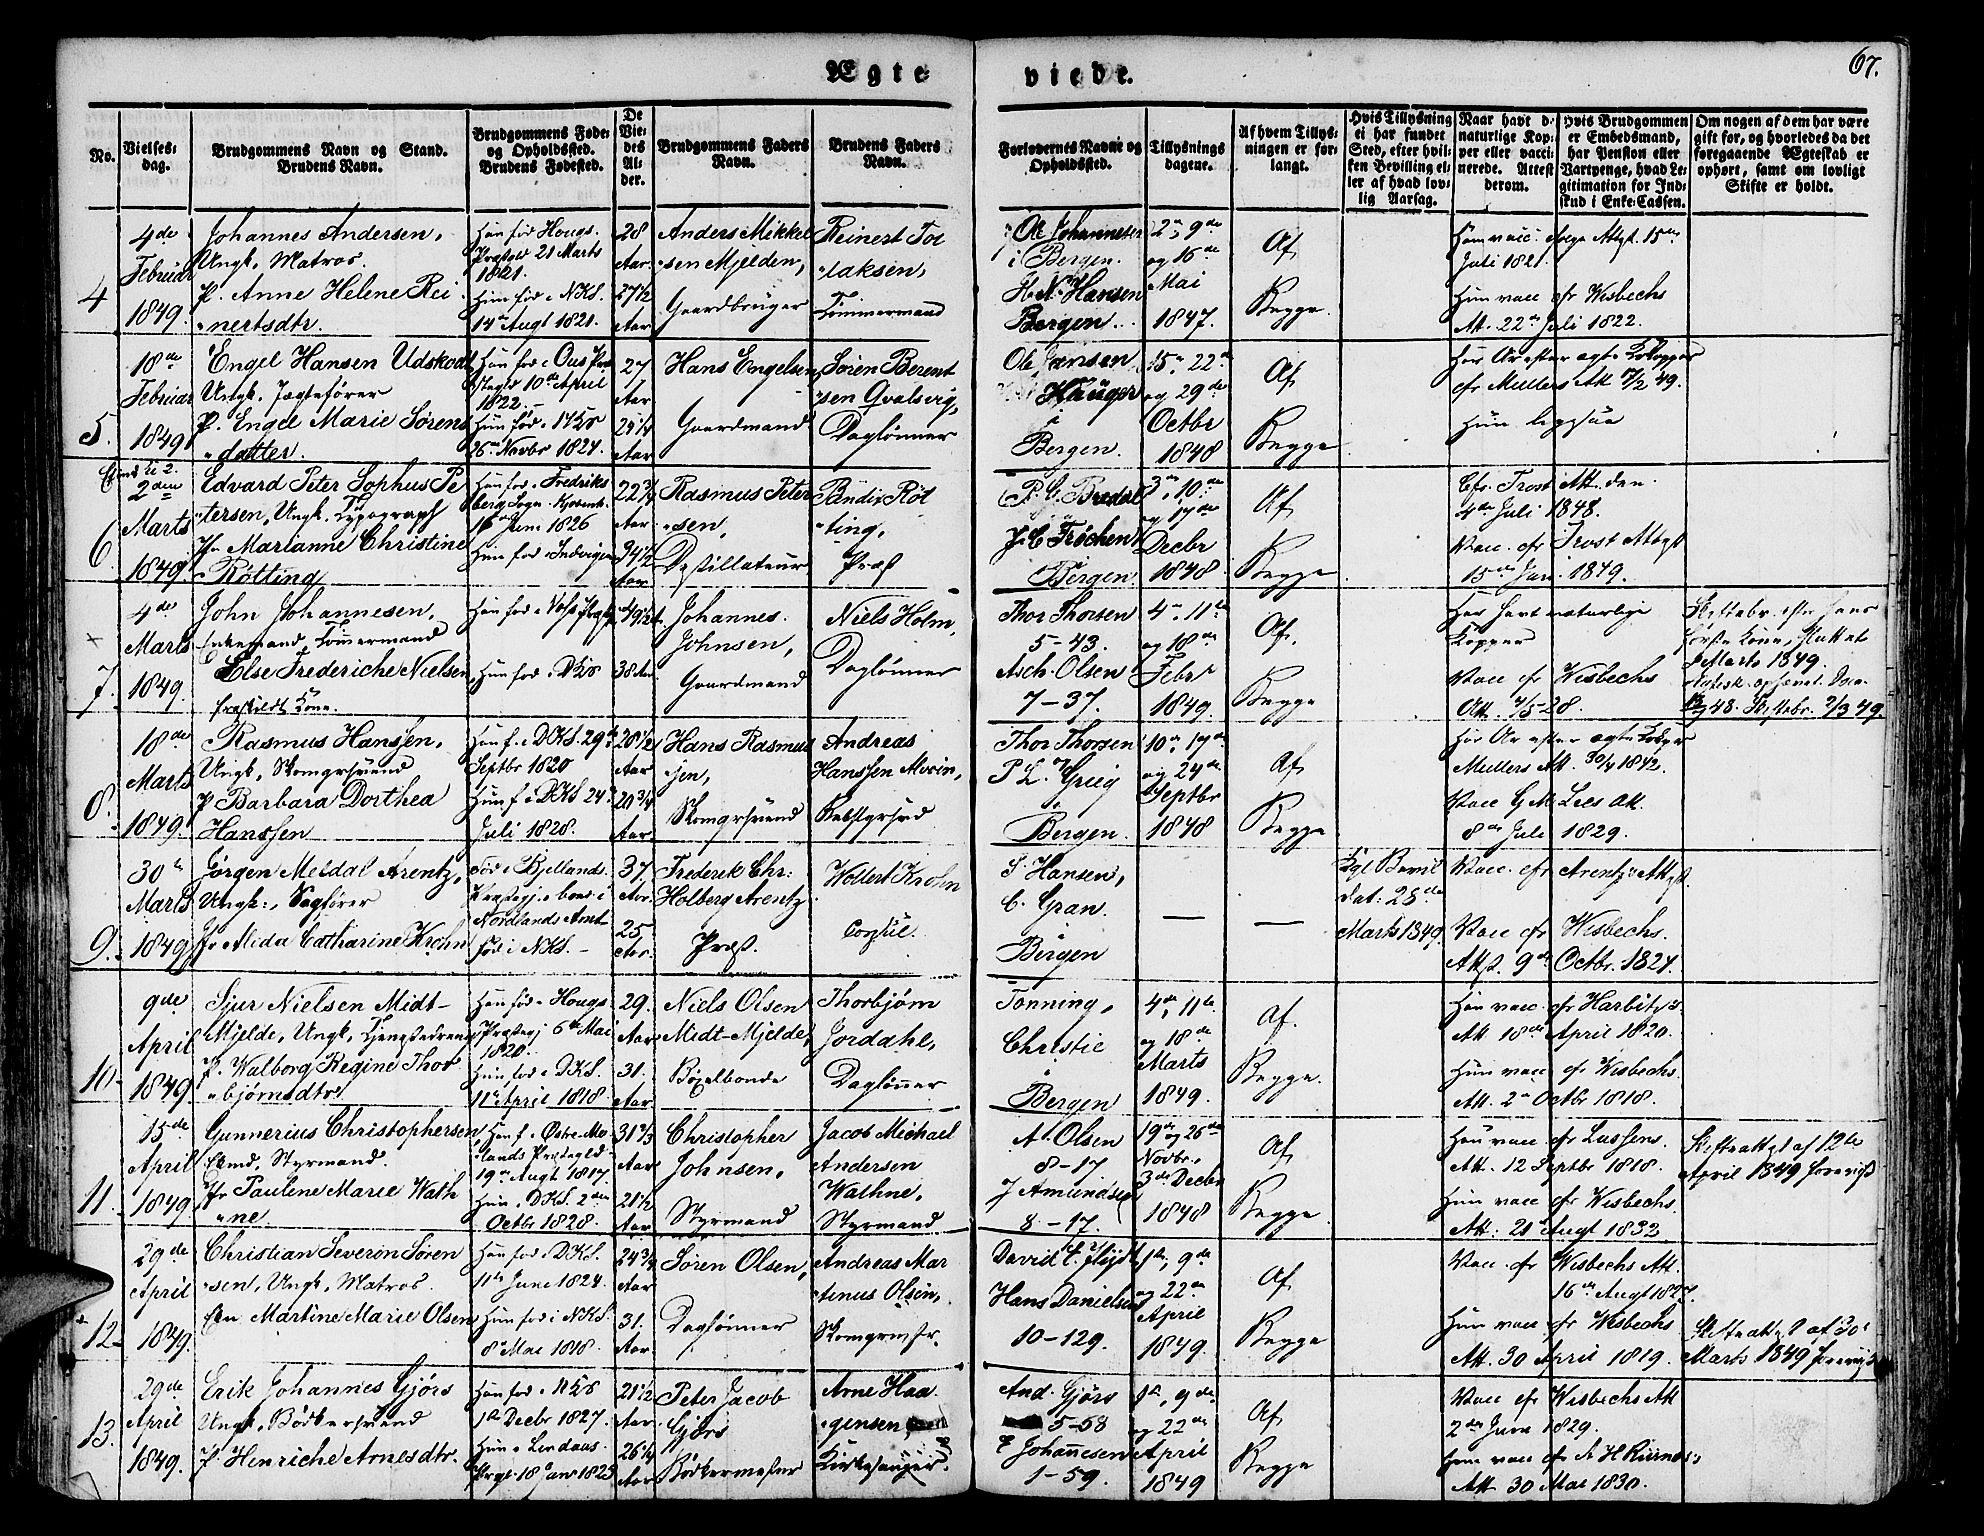 Ægte
viede.
67.
No.
Vielses-
dag.
Brudgommens Navn og Stand.
Brudens Navn.
Brudgommens Føde-
og Opholdssted.
Brudens Fødested.
De
Vie-
des
Al-
der.
Brudgommens Faders
Navn.
Brudens Faders
Navn.
Forlovernes Navne og
Opholdssted.
Tillysnings
dagene.
Af hvem Tillys-
ningen er for-
langt.
Hvis Tillysning
ei har fundet
Sted, efter hvil-
ken Bevilling el-
ler af hvad lov-
lig Aarsag.
Naar havt d.
naturlige Kop-
per eller vacci-
nerede. Attest
derom.
Hvis Brudgommen
er Embedsmand,
har Pension eller
Vartpenge, hvad Le-
gitimation for Ind-
skud i Enke-Cassen.
Om nogen af dem har være
gift før, og hvorledes da det
foregaaende Ægteskab er
ophørt, samt om lovligt
Skifte er holdt.
4
4de
Februar
1849.
Johannes Andersen,
Ungk, Matros.
P. Anne Helene Rei
nertsdtr.
Han fød Hougs
Præstegd 21 Marts
1821.
Hun fød i NKS.
14de Augt 1821.
28
Aar
27 1/2
Aar
Anders Mikkel
sen Mjelden,
Gaardbruger
Reinert Tol
laksen,
Tømmermand
Ole Johannesen
i Bergen.
H. N. Hansen
Bergen.
2n, 9de
og 16de
Mai
1847.
Af
Begge
Ham vacc. Attst. 15de
Juli 1821.
Hun vacc. efr Wisbechs
At. 22de Juli 1822.
5.
18de
Februar
1849
Engel Hansen Udskodt
Ungk, Jægtefører
P. Engel Marie Sørens
datter.
Han fød i Ous Præ
stegd 10de April
1822.
Hun fød i NKS
26de Novbr 1824.
27
Aar
24 1/4
Aar
Hans Engelsen,
Gaardmand
Søren Berent
sen Qvalsvig,
Daglønner
Ole Jansen
Hauger
i
Bergen.
15n, 22de
og 29de
Octbr
1848
Af
Begge
Har Ar efter ægte Kopper
efr Mullers Att 17/2 49.
Hun ligesaa
6
2den
Marts
1849
Edvard Peter Sophus Pe
tersen, Ungk. Typograph
Jfr Marianne Christine
Røtting
Han fød i Fredriks
berg Sogn
1826
Hun fød i Indvigen
22 3/4
Aar
24 1/2
Aar
Rasmus Peter
sen,
Destillateur
Pauldix Røt
ting,
Præst
P. G. Bredal
J. C. Frøchen
Bergen.
3n, 10de
og 17de
Decbr
1848
Af
Begge
Efr. Trost Att. den
4de Juli 1848.
Vacc. efr Trost Attst
15de Jan. 1849.
7.
4de
Marts
1849.
John Johannesen,
Enkemand, Tømmermand
Else Frederiche Nielsen,
fraskildt Kone.
Han fød i Vos Præstegd
Hun fød i DKS
49 1/2
38 Aar
Johannes
Johnsen,
Gaardmand
Niels Holm,
Daglønner
Thor Thorsen
5-43.
Asch. Olsen
7-37.
4n, 11te
og 18de
Febr
1849.
Af.
Begge
Har havt naturlige
Kopper
Vacc efr Wisbechs
Att. 4/5-28.
Skiftebr. efter hans
første Kone, sluttet
Marts 1849.
Skiftebr. 2/3 49.
8.
18de
Marts
1849.
Rasmus Hanssen,
Ungk, Skomgrsvend
P. Barbara Dorthea
Hanssen
Han f. i DKS. 29de
Septbr 1820
Hun f. i DKS 24de
Juli 1828.
28 1/2
Aar
20 3/4
Aar.
Hans Rasmus
sen,
Skomgrsvend
Andreas
Hanssen Alvrin,
Thor Thorsen
P. L. Grieg
Bergen.
10n, 17de
og 24de
Septbr
1848
Af
Begge
Har Ar efter ægte Kopper
Mullers Att. 30/4 1842.
Vacc G M Lies At.
8de Juli 1829.
9.
30te
Marts
1849
Jørgen Meldal Arentz,
Ungk., Sagfører
Jfr Alida Catharine Krohn
Fød i Bjellands
Præstegj. boer i
Nordlands Amt
Fød i NKS.
37.
Aar.
25
Aar.
Frederik Chr:
Holberg Arentz
Præst.
Wollert Krohn
Consul.
S. Hansen,
C. Gran.
Bergen
Kgl Bevil
dat: 25de
Marts 1849.
Vacc. efr Arentz's Attst.
Vacc efr Wisbechs.
Attst. 9de Octbr. 1824.
10
9de
April
1849
Sjur Nielsen Midt-
Mjelde, Ungk, Tjenestedreng
P. Walborg Regine Thor
bjørnsdtr
Han fød i Hougs
Præstegj 6te Mai
1820.
Hun fød i DKS.
11te April 1818.
29.
Aar
31.
Aar
Niels Olsen
Midt-Mjelde,
Bøxelbonde
Thorbjørn
Jordahl,
Dagløner
Tonning,
Christie
Bergen
4de, 11te
og 18de
Marts
1849.
Af.
Begge.
Han vacc. efr Harbitz's
Att. 18de April 1820.
Hun vacc efr Wisbechs.
Att. 2n Octbr 1818.
11.
15de
April
1849
Gunnerius Christophersen
Ekmd, Styrmand.
Jfr Pauline Marie Wath
ne.
Han f. i Østre Mo
lands Præstegld
19de Augt 1817.
Hun i DKS. 2den
Octbr 1828.
31 2/3
Aar
21 1/2
Aar
Christopher
Johnsen,
Styrmand
Jacob Michael
Andersen
Wathne,
Styrmand
A. Olsen
8-17
J Amundsen
8-17.
19de og 26de
Novbr.,
3de Decbr
1848
Af
Begge
Han vacc efr Lassens.
Att. 12 Septbr 1818.
Hun vacc efr Wisbechs.
Att. 21 Augt 1832
Skifteattst af 12te
April 1849 forevist
12
29de
April
1849.
Christian Severin Søren
sen, Ungk, Matros.
Ekn Martine Marie Olsen
Han fød i DKS.
11te June 1824.
Hun fød i NKS.
8de Mai 1818.
24 3/4
Aar
31.
Aar
Søren Olsen,
Daglønner
Andreas Mar
tinus Olsen,
Skomgrmstr.
David C. Fløjst
Hans Danielsen
10-129.
1te, 9de
og 22de
April
1849.
Af
Begge
Vacc efr Wisbechs Att.
16de Augt 1827.
Hun vacc efr Wisbechs
Att. 30 April 1819.
Skifteattst af 30te
Marts 1849 forevist
13.
29de
April
1849.
Erik Johannes Gjørs
Ungk, Bødkersvend
P. Henriche Arnesdtr.
Han fød i NKS
1te Decbr 1827.
Hun i Lindaas
Prgt. 18 Janr 1823
21 1/2
Aar.
26 1/4
Aar
Peter Jacob
Gjørs
Bødkermester
Arne Haa
gensen
Kirkesanger.
And. Gjørs
5-58
E Johannesen
1-59.
1te, 9de
og 22de
April
1849
Af
Begge
Vacc efr Wisbechs Att
2den Juni 1829.
Hun vacc efr
Att 30 Mai 1830.